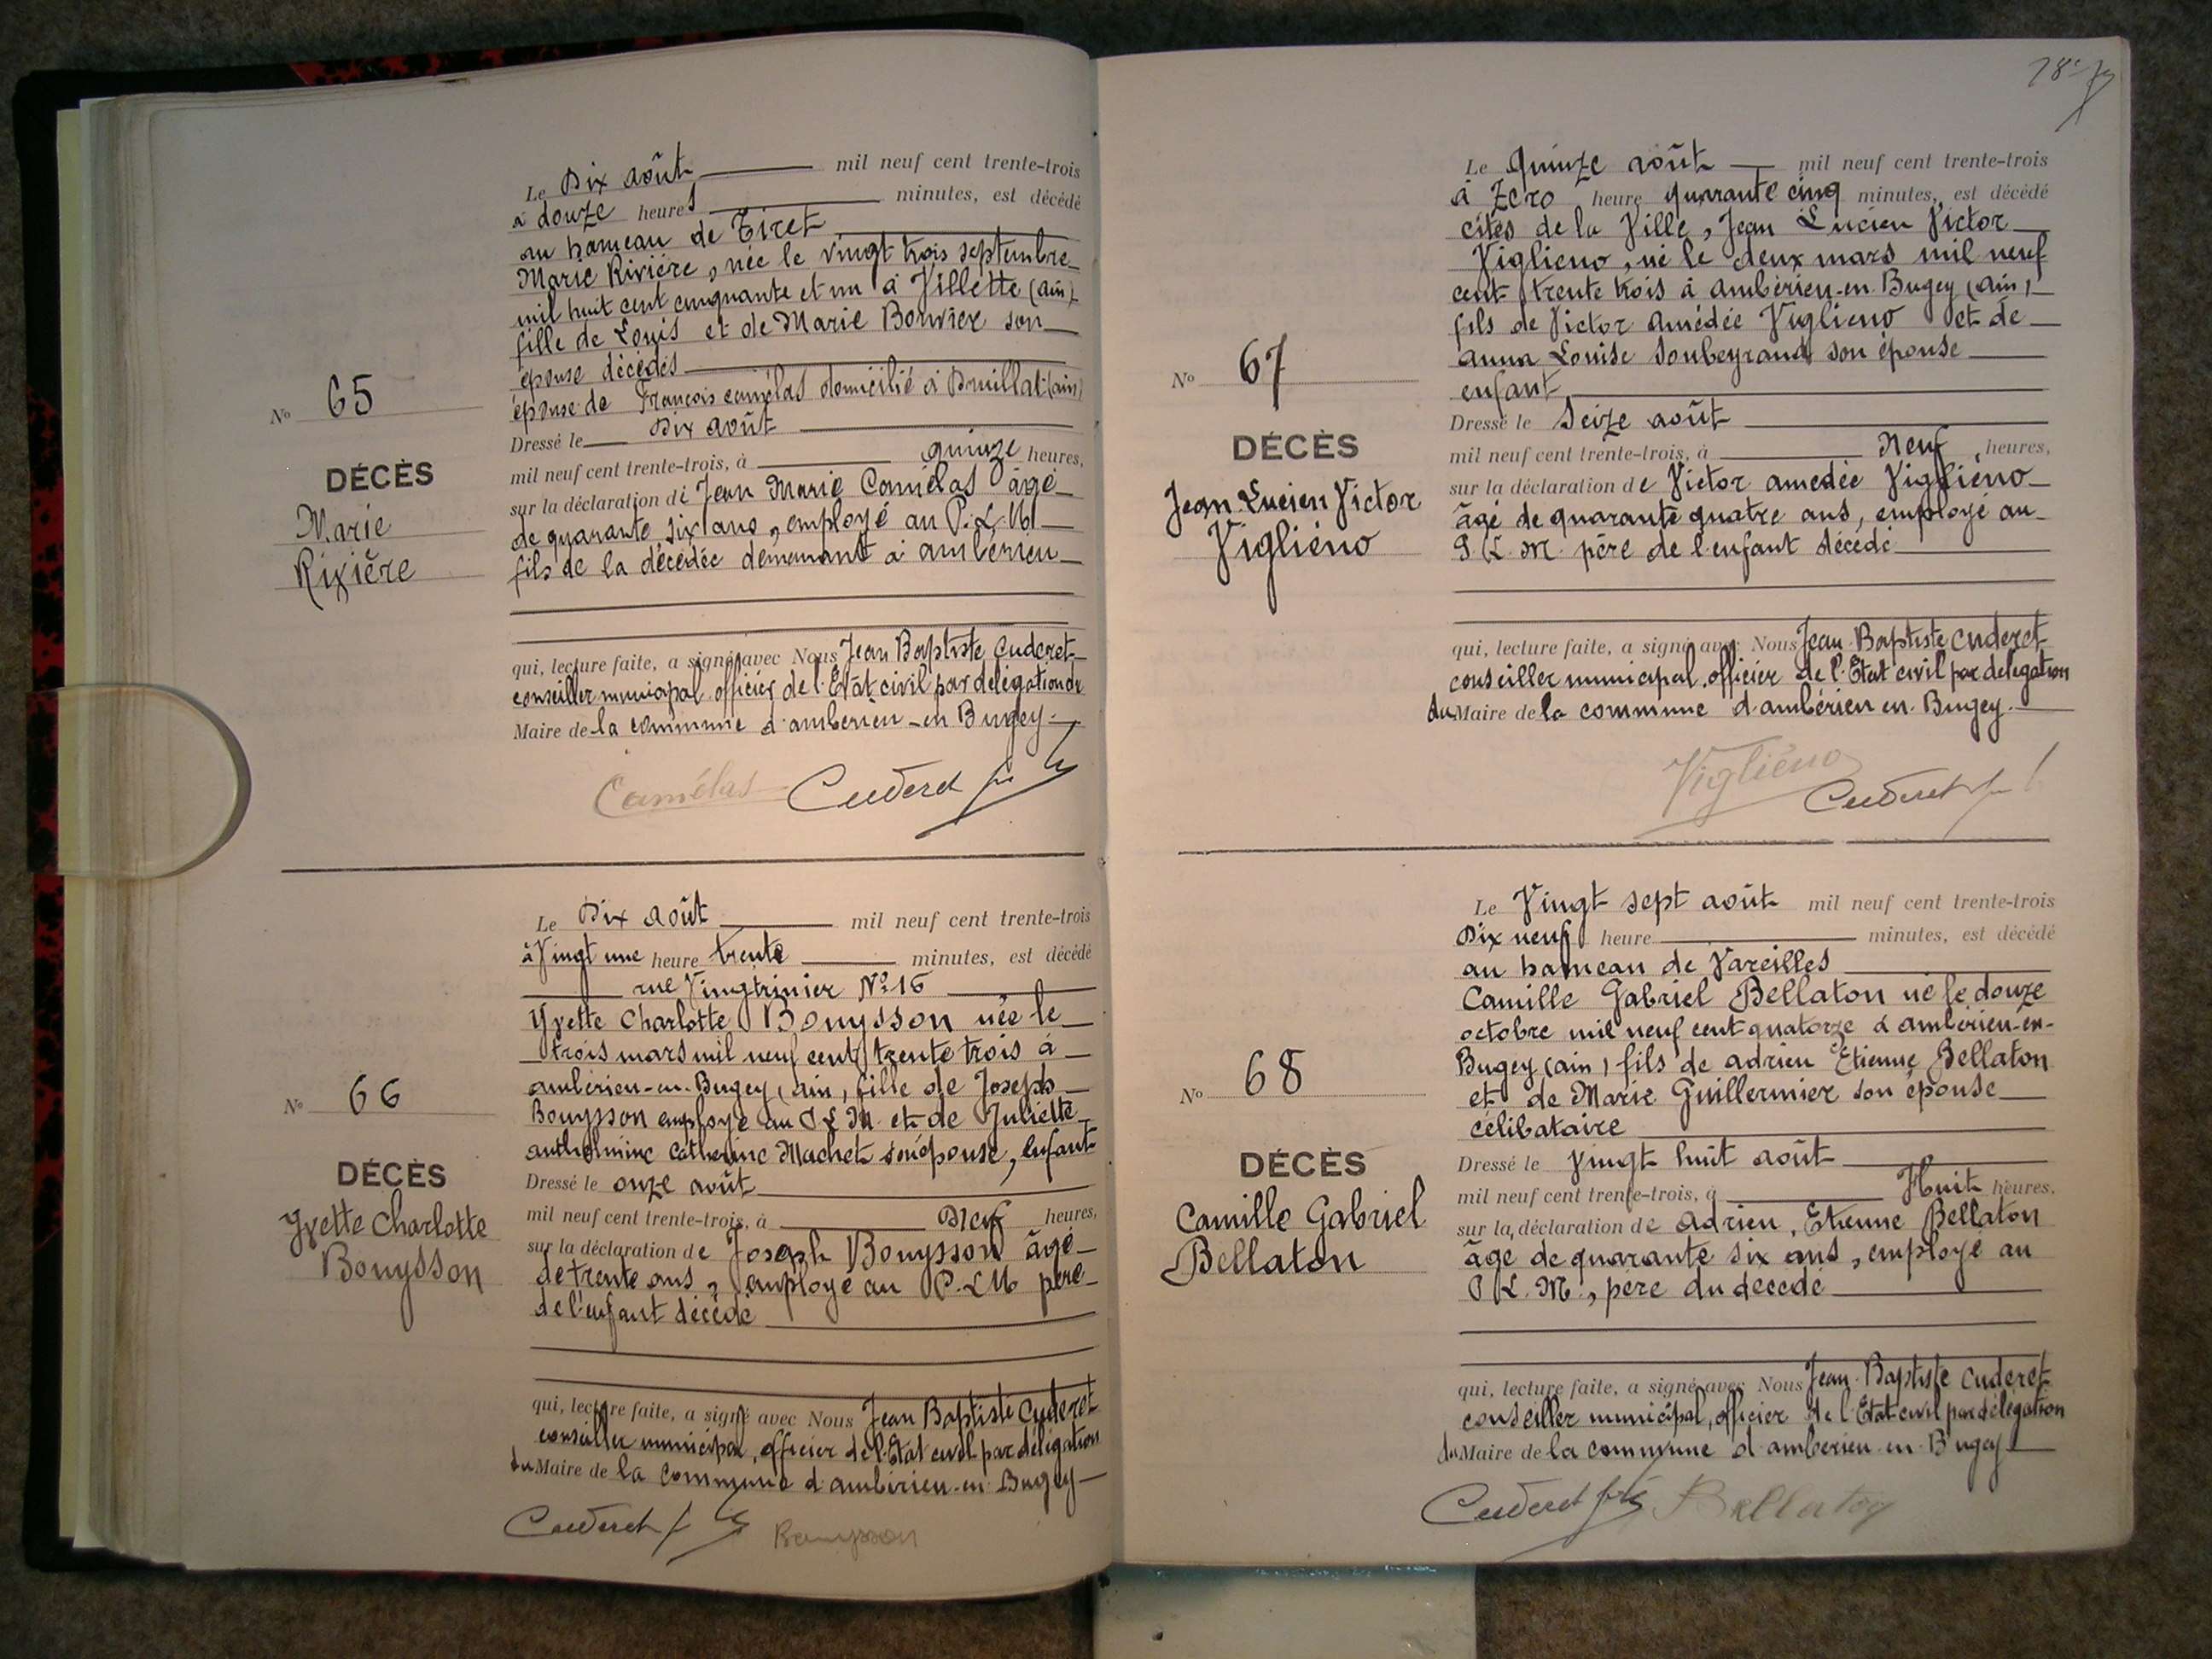 Le Dix août mil neuf cent trente-trois
à douze heures minutes, est décédé
au hameau de Tiret
Marie Rivière, née le vingt trois septembre
mil huit cent cinquante et un à Villette (ain)
fille de Louis et de Marie Bouvier son
épouse décédés
épouse de François camélas domicilié à Druillat (ain)
Dressé le Dix août
mil neuf cent trente-trois, à quinze heures,
sur la déclaration de Jean Marie Camélas âgé
de quarante six ans, employé au P.L.M
fils de la décédée demeurant à ambérieu
qui, lecture faite, a signé avec Nous Jean Baptiste Cuderet
conseiller municipal officier de l'Etat civil par délégation du
Maire de la commune d'ambérieu-en Bugey
Camélas Cuderet
No 65
DÉCÈS
Marie
Rivière
Le Dix août mil neuf cent trente-trois
à Vingt une heure trente minutes, est décédé
rue Vingtrinier No 16
Yvette Charlotte Bouysson née le
trois mars mil neuf cent trente trois à
ambérieu-en-Bugey (ain, fille de Joseph
Bouysson employé au P L M et de Juliette
anthelmine catherine Machet son épouse, enfant
Dressé le onze août
mil neuf cent trente-trois, à Neuf heures,
sur la déclaration de Joseph Bouysson âgé
de trente ans, employé au P.L.M père
de l'enfant décédé
qui, lecture faite, a signé avec Nous Jean Baptiste Cuderet
conseiller municipal, officier de l'Etat civil par délégation
du Maire de la commune d'ambérieu-en-Bugey
Cuderet Bouysson
No 66
DÉCÈS
Yvette Charlotte
Bouysson
78
Le Quinze août mil neuf cent trente-trois
à Zéro heure quarante cinq minutes, est décédé
cités de la Ville, Jean Lucien Victor
Viglieno, né le deux mars mil neuf
cent trente trois à ambérieu-en-Bugey (ain)
fils de Victor amédée Viglieno et de
anna Louise Soubeyrand son épouse
enfant
Dressé le Seize août
mil neuf cent trente-trois, à Neuf heures,
sur la déclaration de Victor amedée Vigliéno
âgé de quarante quatre ans, employé au
P.L.M. père de l'enfant décédé
qui, lecture faite, a signé avec Nous Jean-Baptiste Cuderet
conseiller municipal, officier de l'Etat civil par délégation
du Maire de la commune d'ambérieu en Bugey.
Vigliéno Cuderet
No 67
DÉCÈS
Jean-Lucien Victor
Vigliéno
Le Vingt sept août mil neuf cent trente-trois
Dix neuf heure minutes, est décédé
au hameau de Vareilles
Camille Gabriel Bellaton né le douze
octobre mil neuf cent quatorze à ambérieu-en-
Bugey (ain) fils de adrien Etienne Bellaton
et de Marie Guillermier son épouse
célibataire
Dressé le Vingt huit août
mil neuf cent trente-trois, à Huit heures,
sur la déclaration de adrien, Etienne Bellaton
âgé de quarante six ans, employé au
P.L.M., père du décédé
qui, lecture faite, a signé avec Nous Jean-Baptiste Cuderet
conseiller municipal, officier de l'Etat civil par délégation
du Maire de la commune d'ambérieu-en-Bugey
Cuderet Bellaton
No 68
DÉCÈS
Camille Gabriel
Bellaton